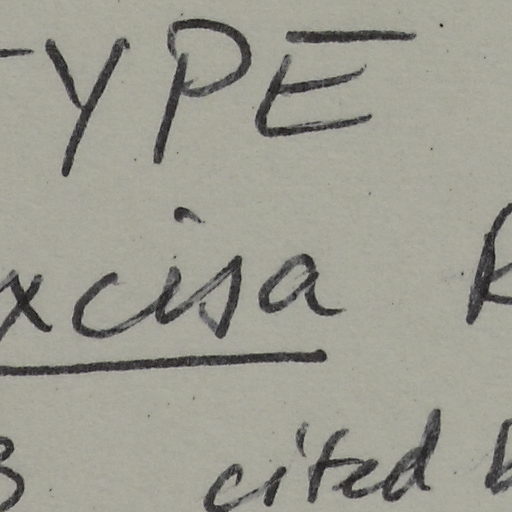 TYPE
xcisa R
3 cited b